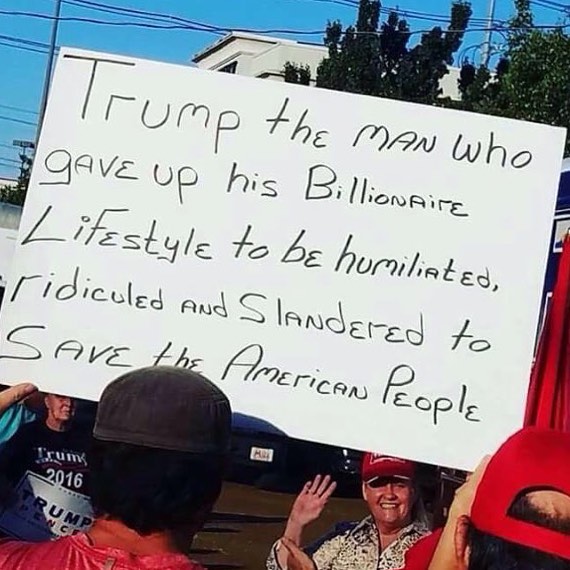 Trump the MAN who
gAVE up his BillionAirE
LifEstylE to bE humiliatEd,
ridiculed AND SlANDErED to
SAVE thE AmEricAN PEoplE
Trump
2016
TRUMP
PENCE